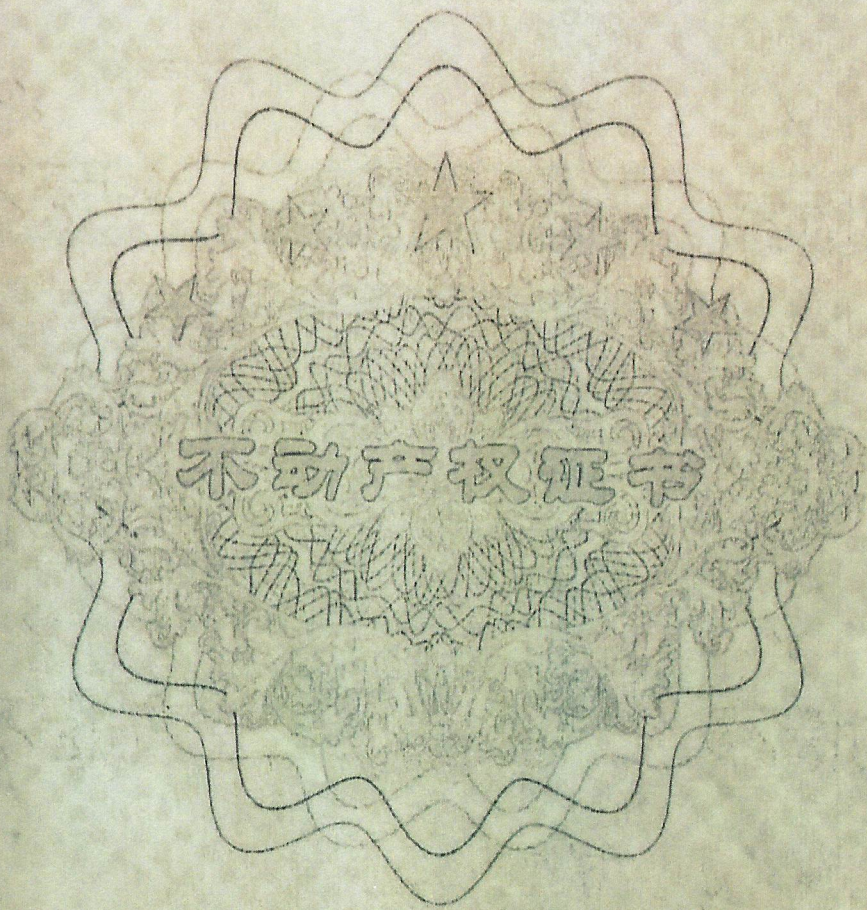 不动产权证书